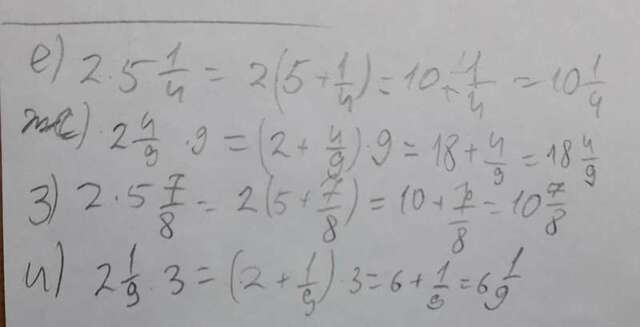 е) 2·5 1/4 = 2(5 + 1/4) = 10 + 1/4 = 10 1/4
ж) 2 4/9 · 9 = (2 + 4/9)·9 = 18 + 4/9 = 18 4/9
з) 2·5 7/8 = 2(5 + 7/8) = 10 + 7/8 = 10 7/8
и) 2 1/9 · 3 = (2 + 1/9)·3 = 6 + 1/9 = 6 1/9